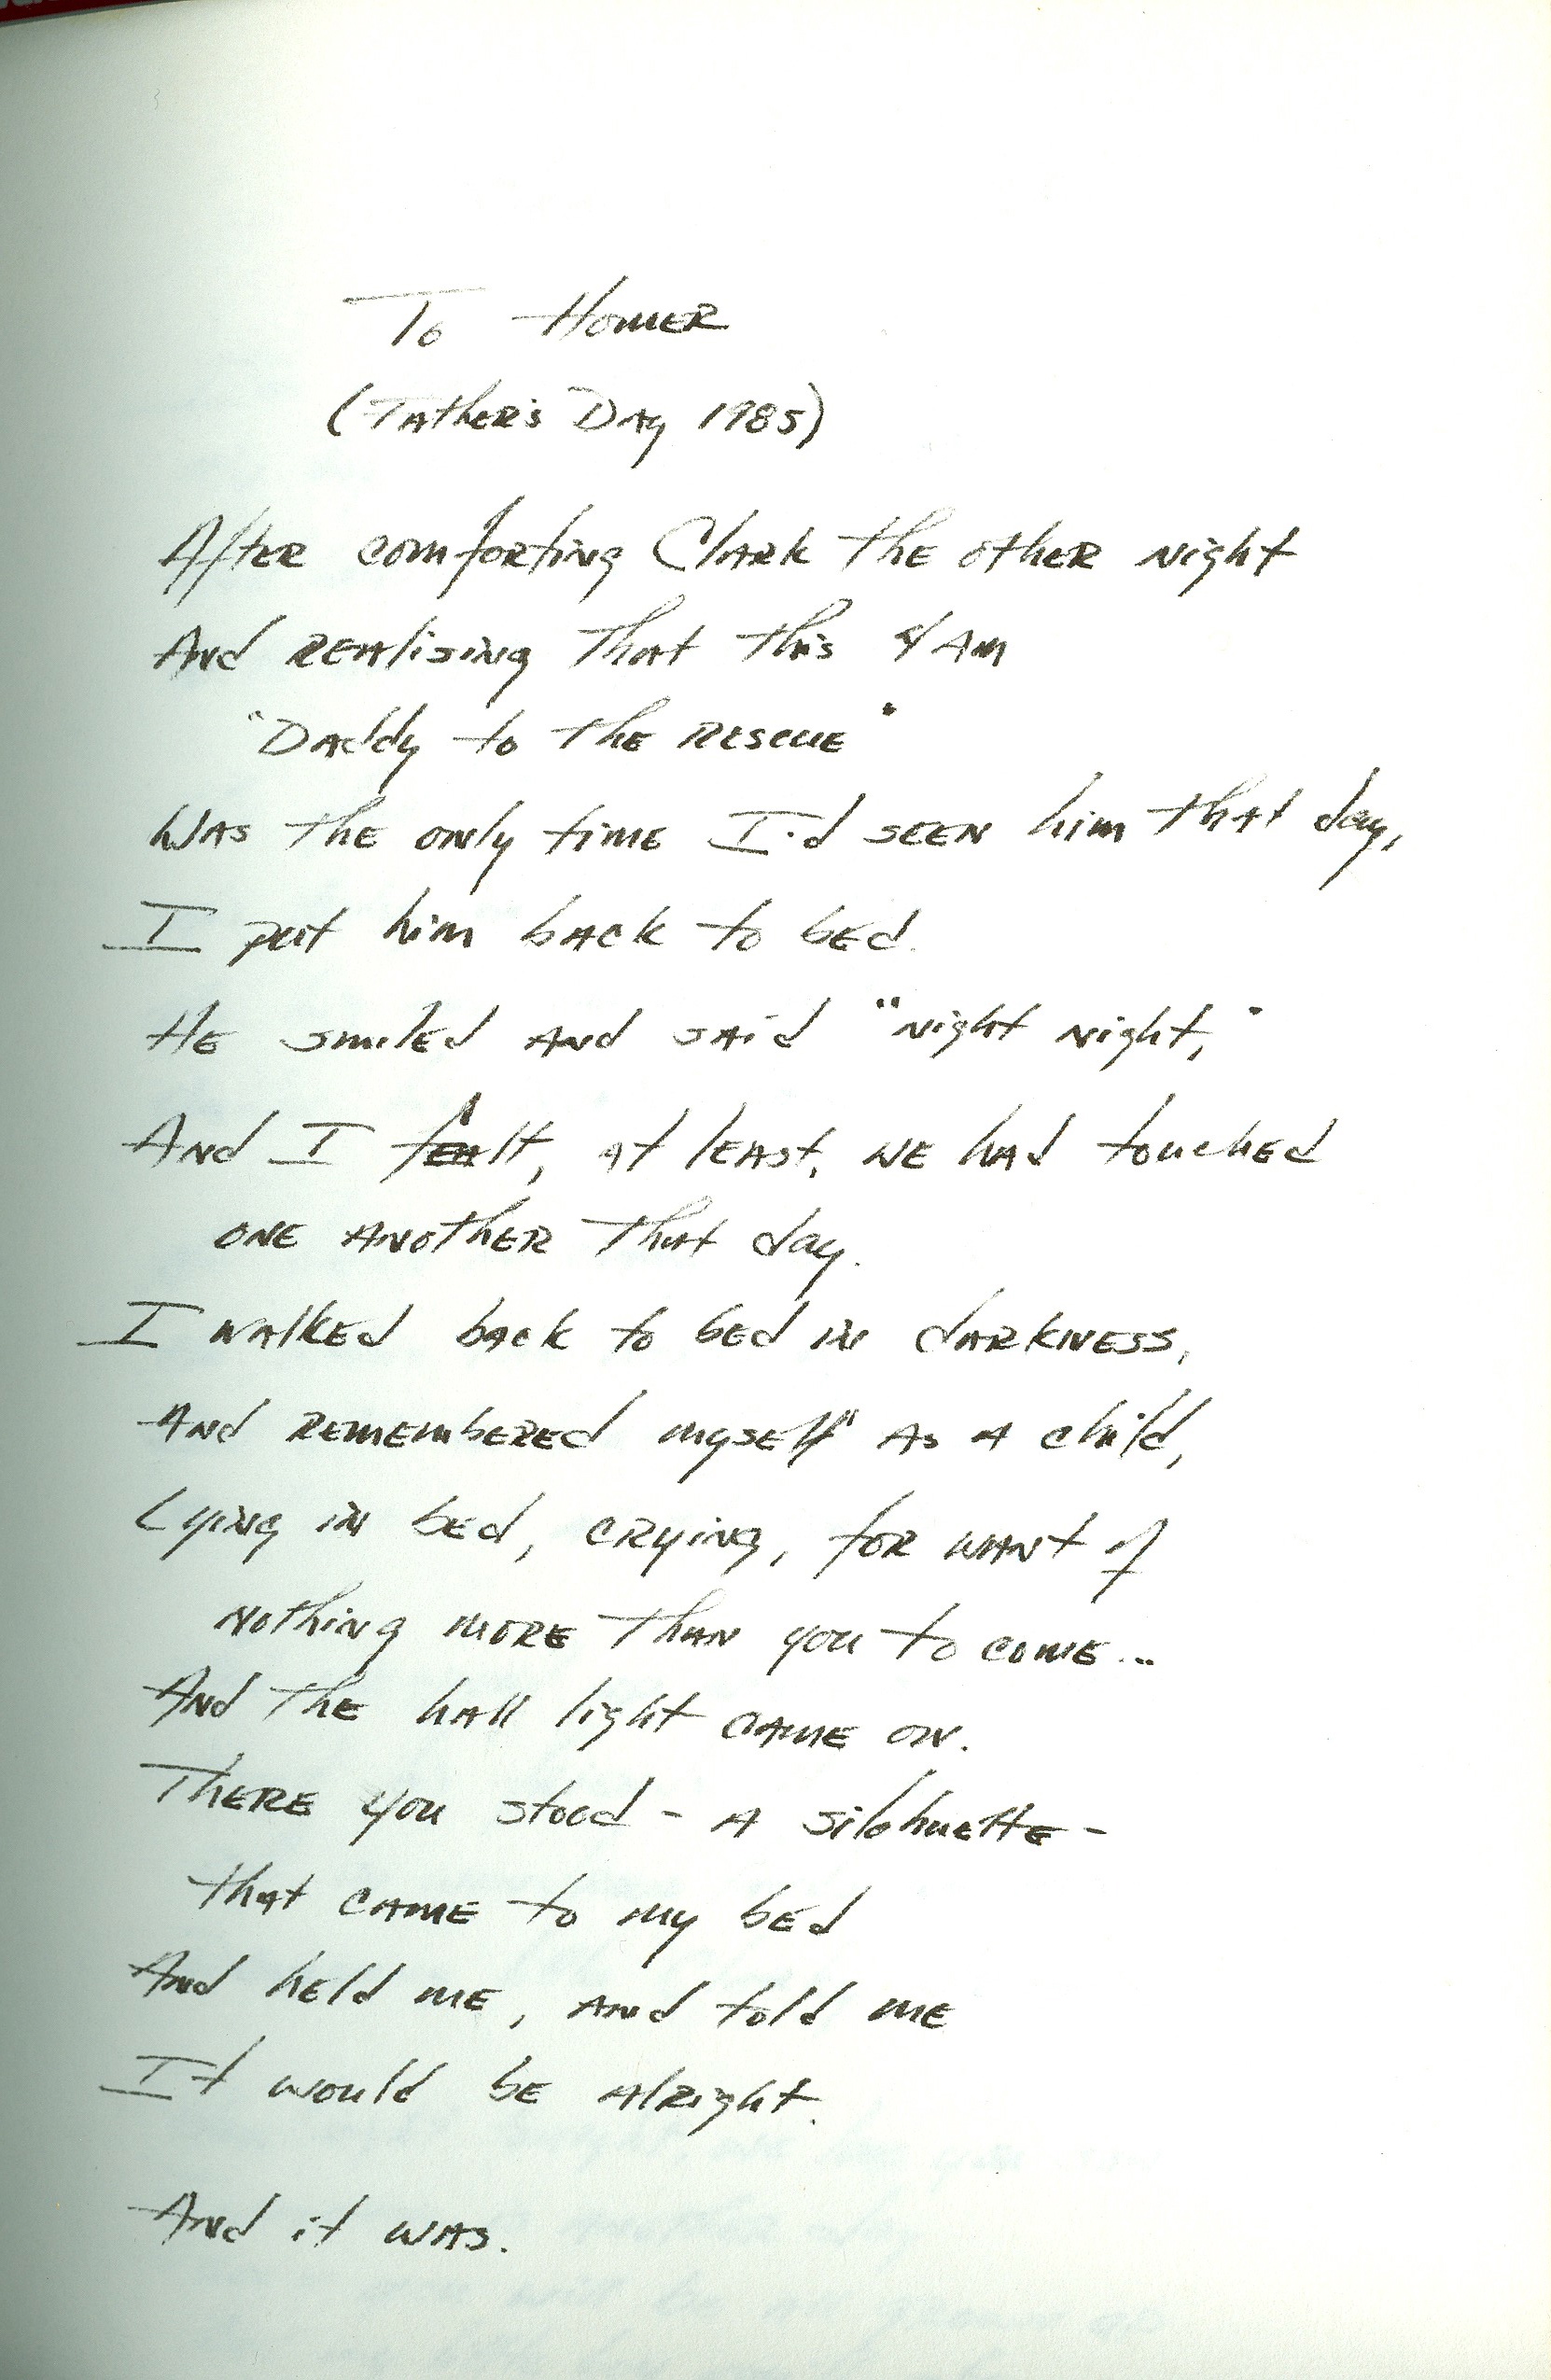 To Homer
(Father's Day 1985)
After comforting Clark the other night
And realising that this 4 AM
"Daddy to the rescue"
Was the only time I'd seen him that day,
I put him back to bed.
He smiled and said "night night,"
And I felt, at least, we had touched
one another that day.
I walked back to bed in darkness,
And remembered myself as a child,
Lying in bed, crying, for want of
nothing more than you to come...
And the hall light came on.
There you stood - a silohuette -
that came to my bed
And held me, and told me
It would be alright.
And it was.